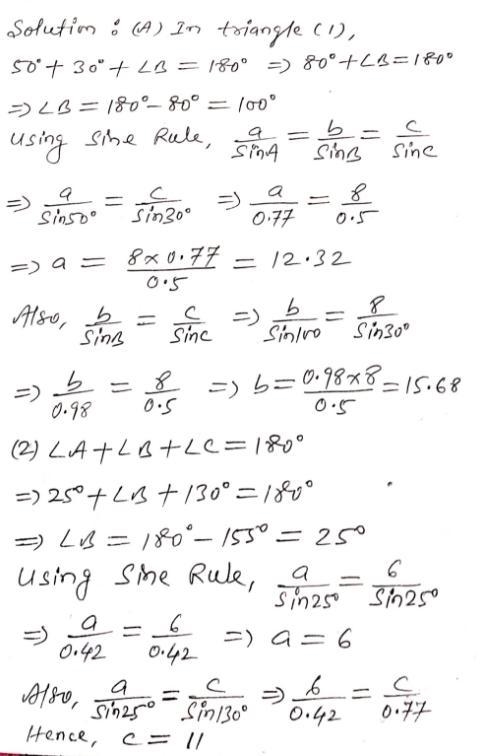 Solution : (A) In triangle (1),
50° + 30° + ∠B = 180° => 80° + ∠B = 180°
=> ∠B = 180° - 80° = 100°
Using Sine Rule, a/SinA = b/SinB = c/Sinc
=> a/Sin50° = c/Sin30° => a/0.77 = 8/0.5
=> a = 8 x 0.77/0.5 = 12.32
Also, b/SinB = c/Sinc => b/Sin100 = 8/Sin30°
=> b/0.98 = 8/0.5 => b = 0.98x8/0.5 = 15.68
(2) ∠A + ∠B + ∠C = 180°
=> 25° + ∠B + 130° = 180°
=> ∠B = 180° - 155° = 25°
Using Sine Rule, a/Sin25° = 6/Sin25°
=> a/0.42 = 6/0.42 => a = 6
Also, a/Sin25° = c/Sin130° => 6/0.42 = c/0.77
Hence, c = 11